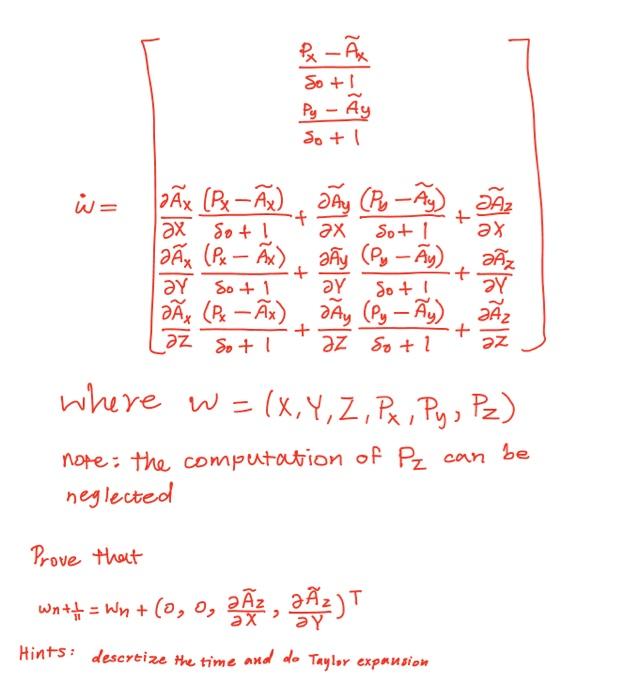 ẇ = [ (Px − Ãx)/(δ0 + 1)
(Py − Ãy)/(δ0 + 1)
∂Ãx/∂X (Px − Ãx)/(δ0 + 1) + ∂Ãy/∂X (Py − Ãy)/(δ0 + 1) + ∂Ãz/∂X
∂Ãx/∂Y (Px − Ãx)/(δ0 + 1) + ∂Ãy/∂Y (Py − Ãy)/(δ0 + 1) + ∂Ãz/∂Y
∂Ãx/∂Z (Px − Ãx)/(δ0 + 1) + ∂Ãy/∂Z (Py − Ãy)/(δ0 + 1) + ∂Ãz/∂Z ]
where w = (X, Y, Z, Px, Py, Pz)
note: the computation of Pz can be
neglected
Prove that
wn+1/11 = wn + (0, 0, ∂Ãz/∂X, ∂Ãz/∂Y)T
Hints: descretize the time and do Taylor expansion